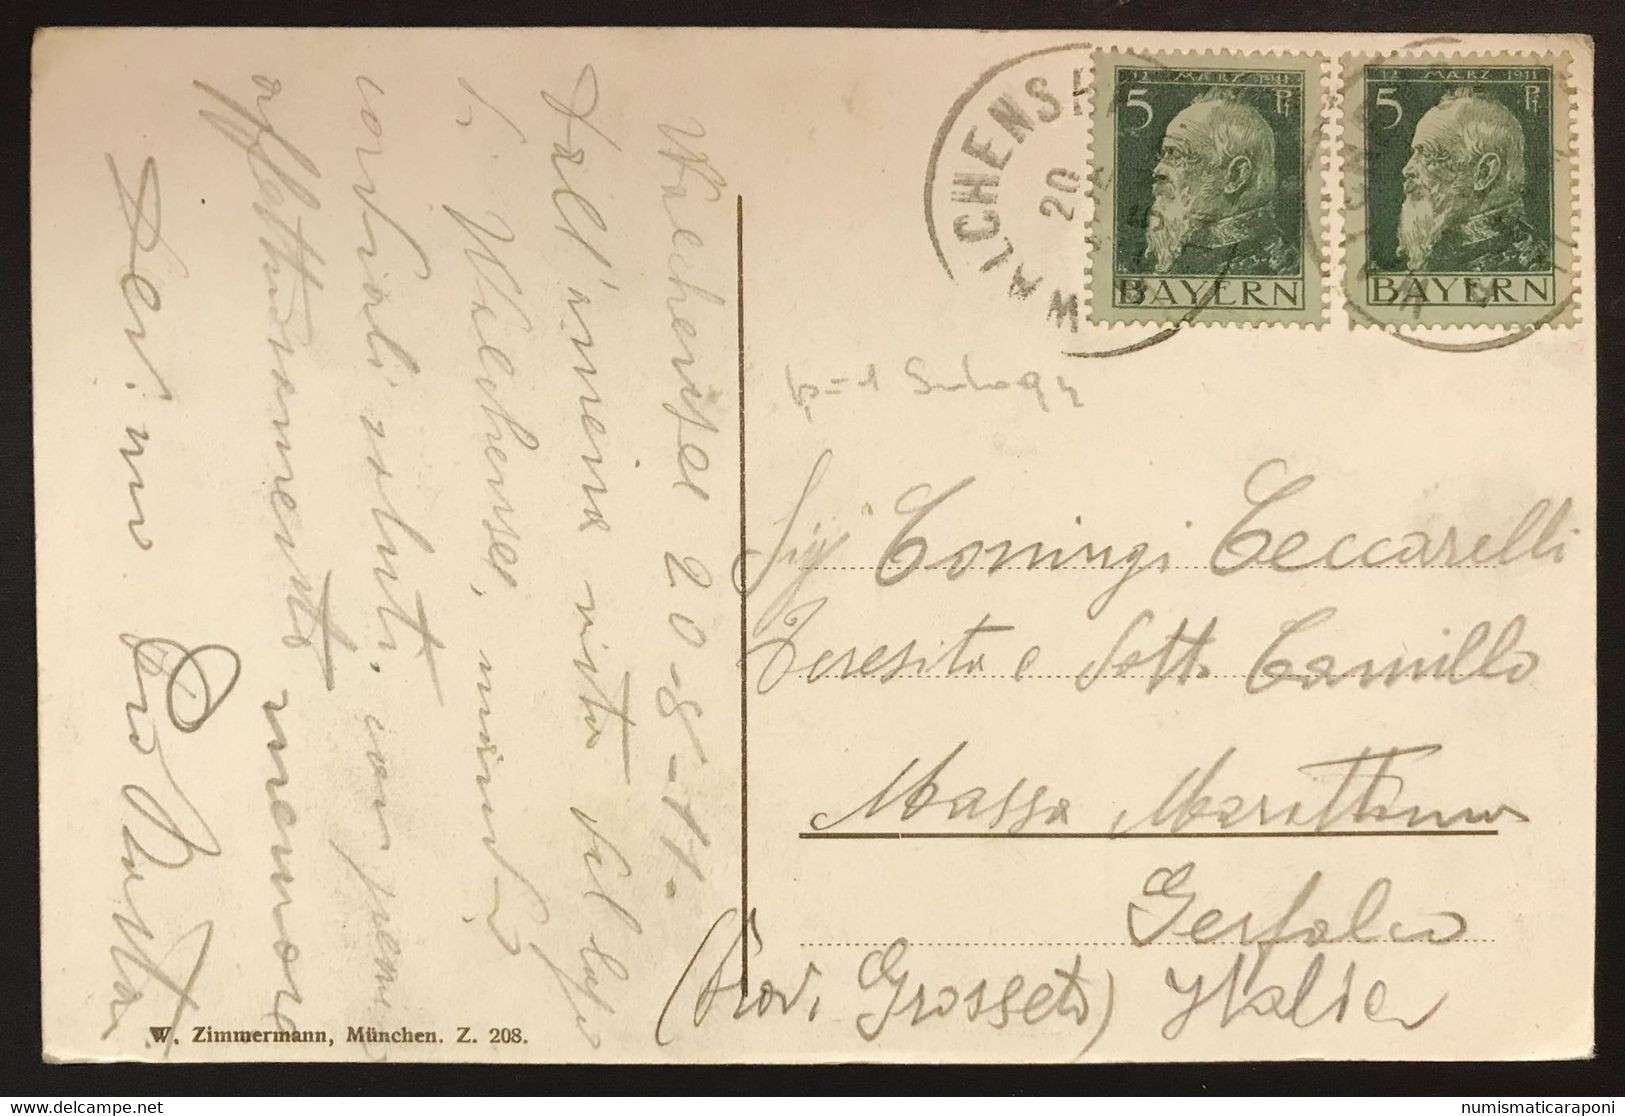 Walchensee 20-8-11.
Dall'amena vista del lago
di Walchensee, mando
cordiali saluti, con
affettuosamente memore
WALCHENSEE
20
12 MÄRZ 1911
5 Pf
BAYERN
12 MÄRZ 1911
5 Pf
BAYERN
Sigi Coniugi Ceccarelli
Teresita e Dott. Camillo
Massa Marittima
Gerfalco
(Prov. Grosseto) Italia
W. Zimmermann, München. Z. 208.
www.delcampe.net
numismaticaraponi